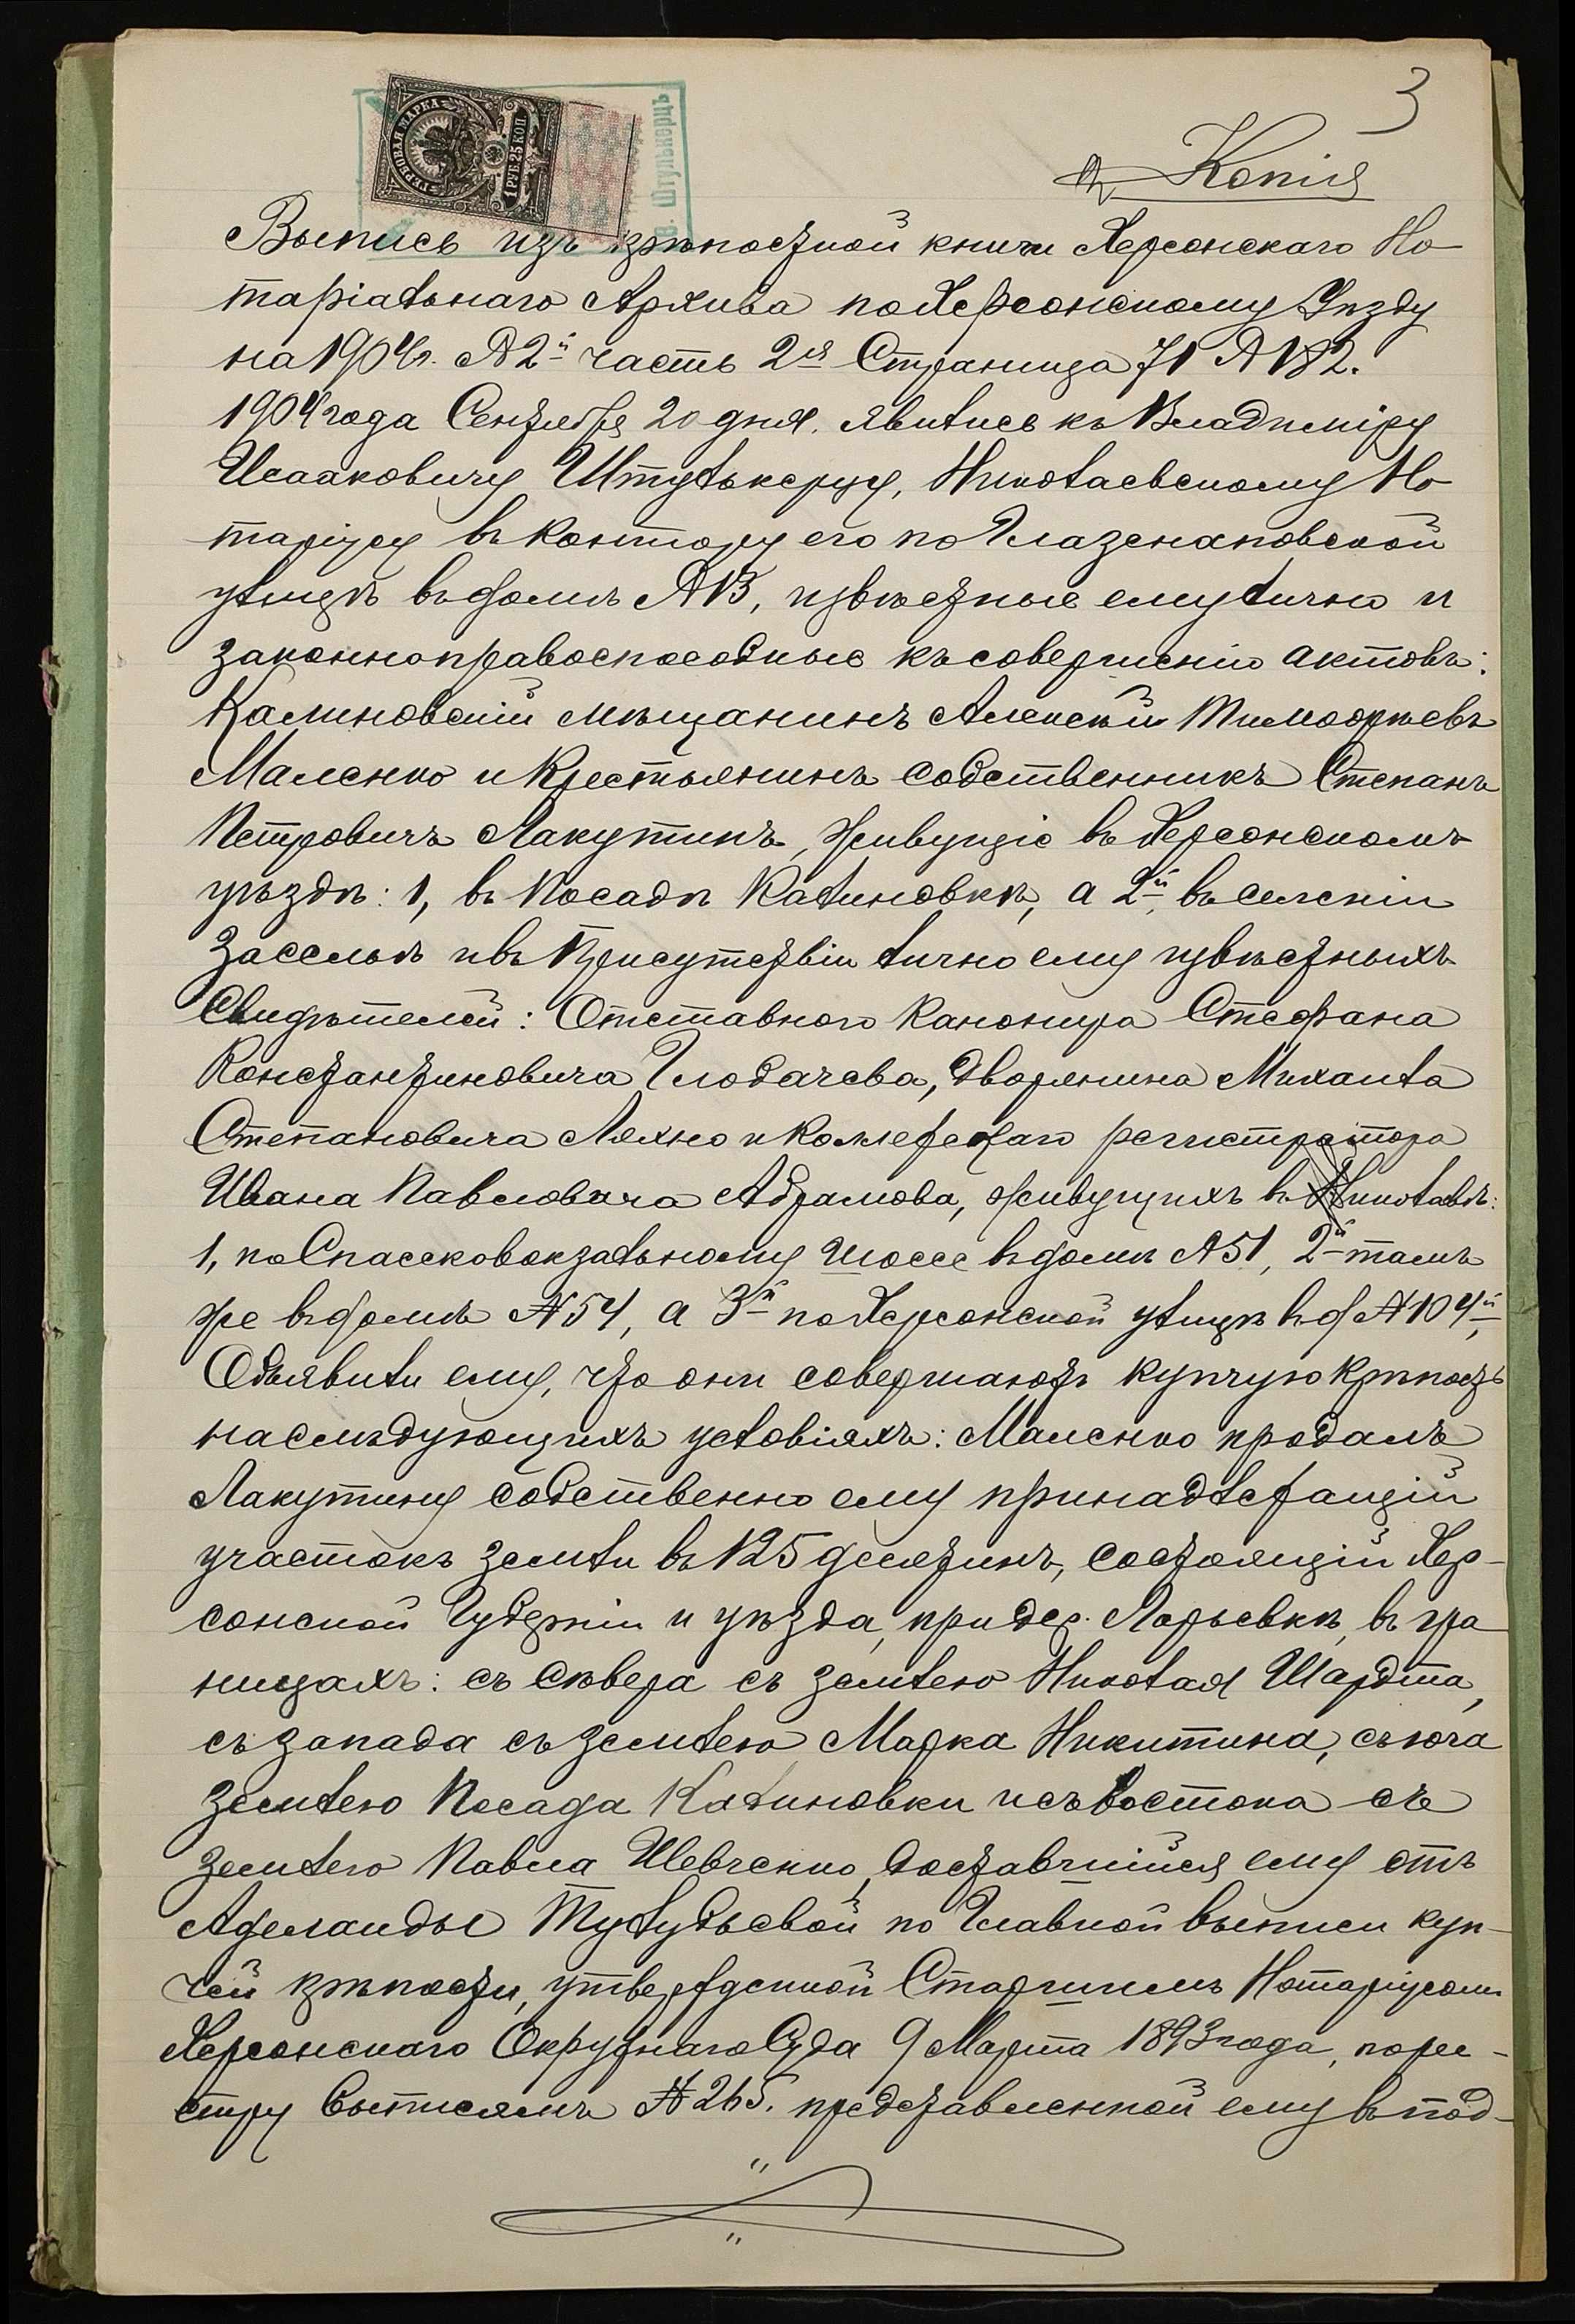 3
Копія
ГЕРБОВАЯ МАРКА
1 РУБ. 25 КОП.
Выпись изъ крѣпостной книги Херсонскаго Но-
таріальнаго Архива по Херсонскому Уѣзду
на 1904 г. № 2й часть 2ая Страница 71 № 182.
1904 года Сентября 20 дня. явились къ Владиміру
Исааковичу Штулькерцу, Николаевскому Но-
таріусу въ контору его по Глазенаповской
улицѣ въ домѣ № 13, извѣстные ему лично и
законноправоспособные къ совершенію актовъ:
Калиновскій мѣщанинъ Алексѣй Тимофѣевъ
Маленко и Крестьянинъ собственникъ Степанъ
Петровичъ Лакутинъ, живущіе въ Херсонскомъ
уѣздѣ: 1, въ Посадѣ Калиновкѣ, а 2й, въ селеніи
Засельѣ и въ присутствіи лично ему извѣстныхъ
Свидѣтелей: Отставного Канонира Стефана
Константиновича Глобачева, Дворянина Михаила
Степановича Ляхно и Коллежскаго регистратора
Ивана Павловича Абрамова, живущихъ въ Николаевѣ:
1, по Спассковокзальному шоссе въ домѣ № 51, 2й тамъ
же въ домѣ № 54, а 3й по Херсонской улицѣ въ д № 104й,
Объявили ему, что они совершаютъ купчую крѣпость
на слѣдующихъ условіяхъ: Маленко продалъ
Лакутину собственно ему принадлежащій
участокъ земли въ 125 десятинъ, состоящій Хер-
сонской Губерніи и уѣзда, при дер. Ларьевкѣ, въ гра
ницахъ: съ сѣвера съ землею Николая Шардта,
съ запада съ землею Марка Никитина, съ юга
землею Посада Калиновки и съ востока съ
землею Павла Шевченко, доставшійся ему отъ
Аделаиды Тулубьевой по Главной выписи куп-
чей крѣпости, утвержденной Старшимъ Нотаріусомъ
Херсонскаго Окружнаго Суда 9 Марта 1893 года, по рее-
стру выписямъ № 265. представленной ему въ под-